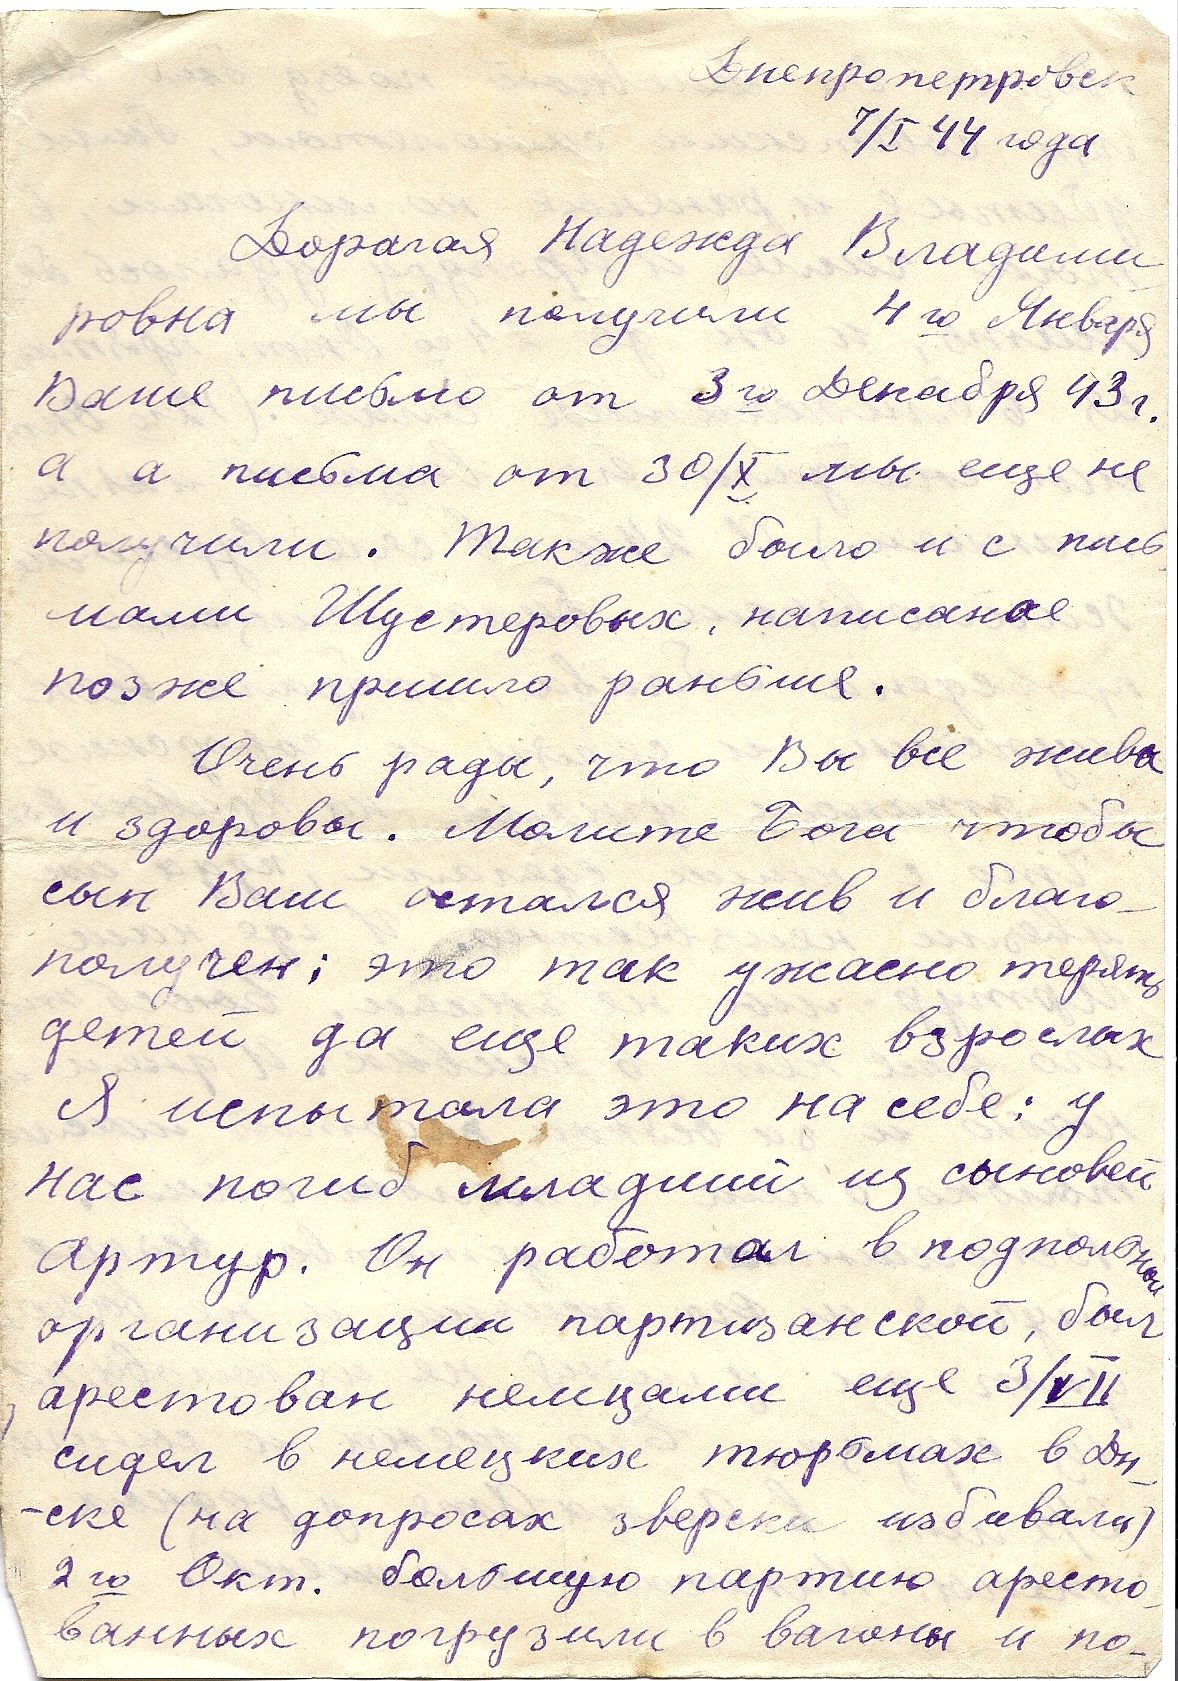 Днепропетровск
7/I 44 года
Дорагая Надежда Владими
ровна мы получили 4го Января
Ваше письмо от 3го Декабря 43 г.
а а письма от 30/X мы еще не
получили. Также было и с пись
мами Шустеровых, написаное
позже пришло раньше.
Очень рады, что Вы все живы
и здоровы. Молите Бога чтобы
сын Ваш остался жив и благо-
получен; это так ужасно терять
детей да еще таких взрослых
Я испытала это на себе: у
нас погиб младший из сыновей
Артур. Он работал в подпольной
организации партизанской, был
арестован немцами еще 3/VII
сидел в немецких тюрьмах в Дн-
-ске (на допросах зверски избивали)
2го Окт. большую партию аресто-
ванных погрузили в вагоны и по-